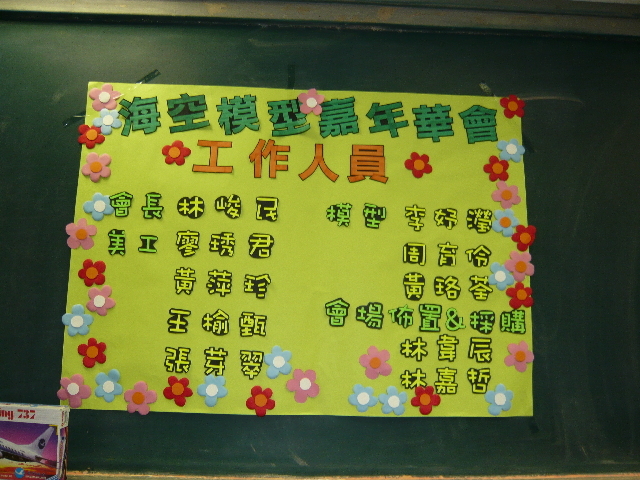 海空模型嘉年華會
工作人員
會長 林峻民
美工 廖琇君
黃萍珍
王榆甄
張芽翠
模型 李妤瀅
周育伶
黃珞荃
會場佈置&採購
林韋辰
林嘉哲
ing 737